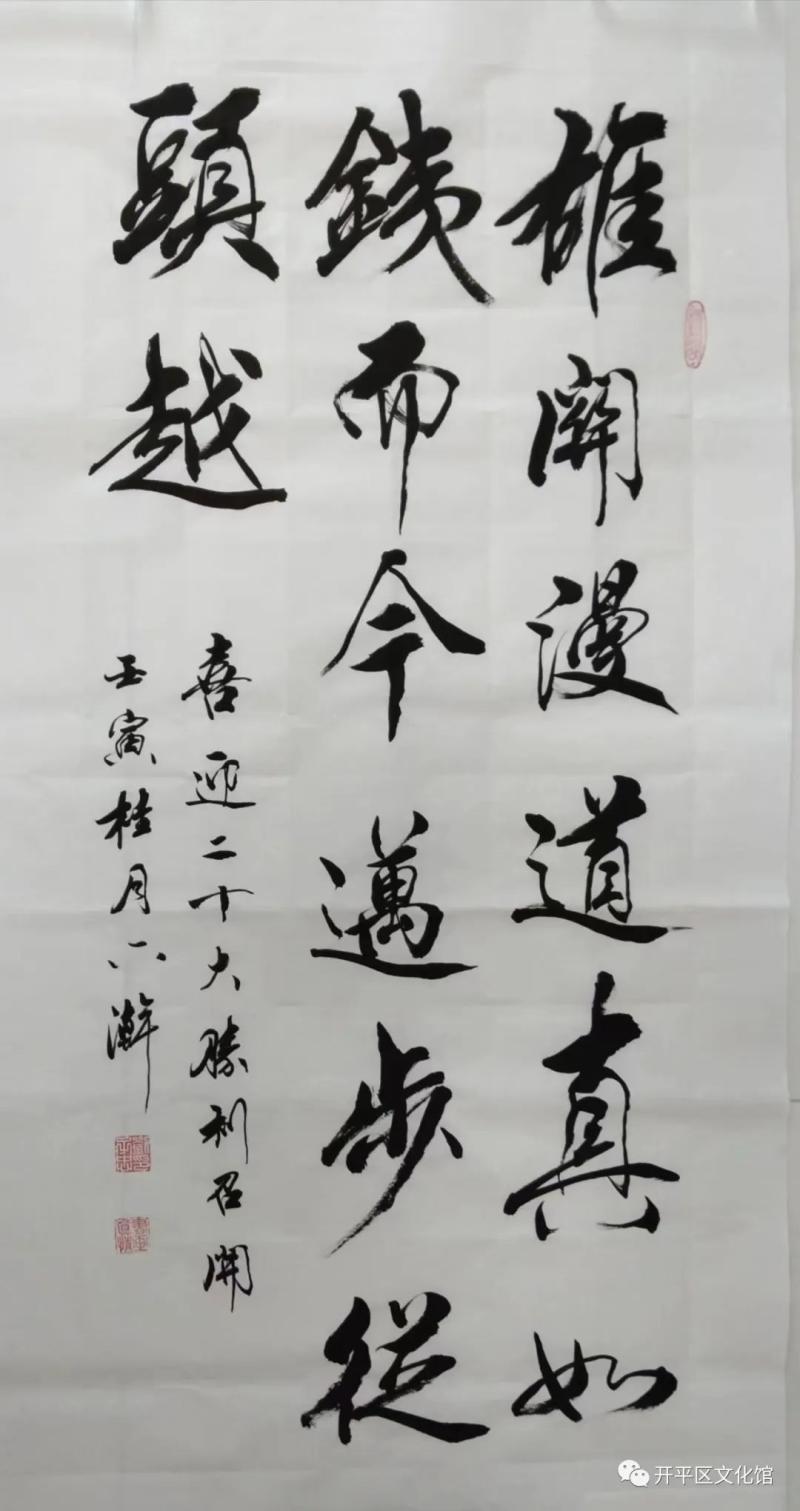 雄關漫道真如
鐵而今邁步從
頭越
喜迎二十大勝利召開
壬寅桂月六瀚
开平区文化馆